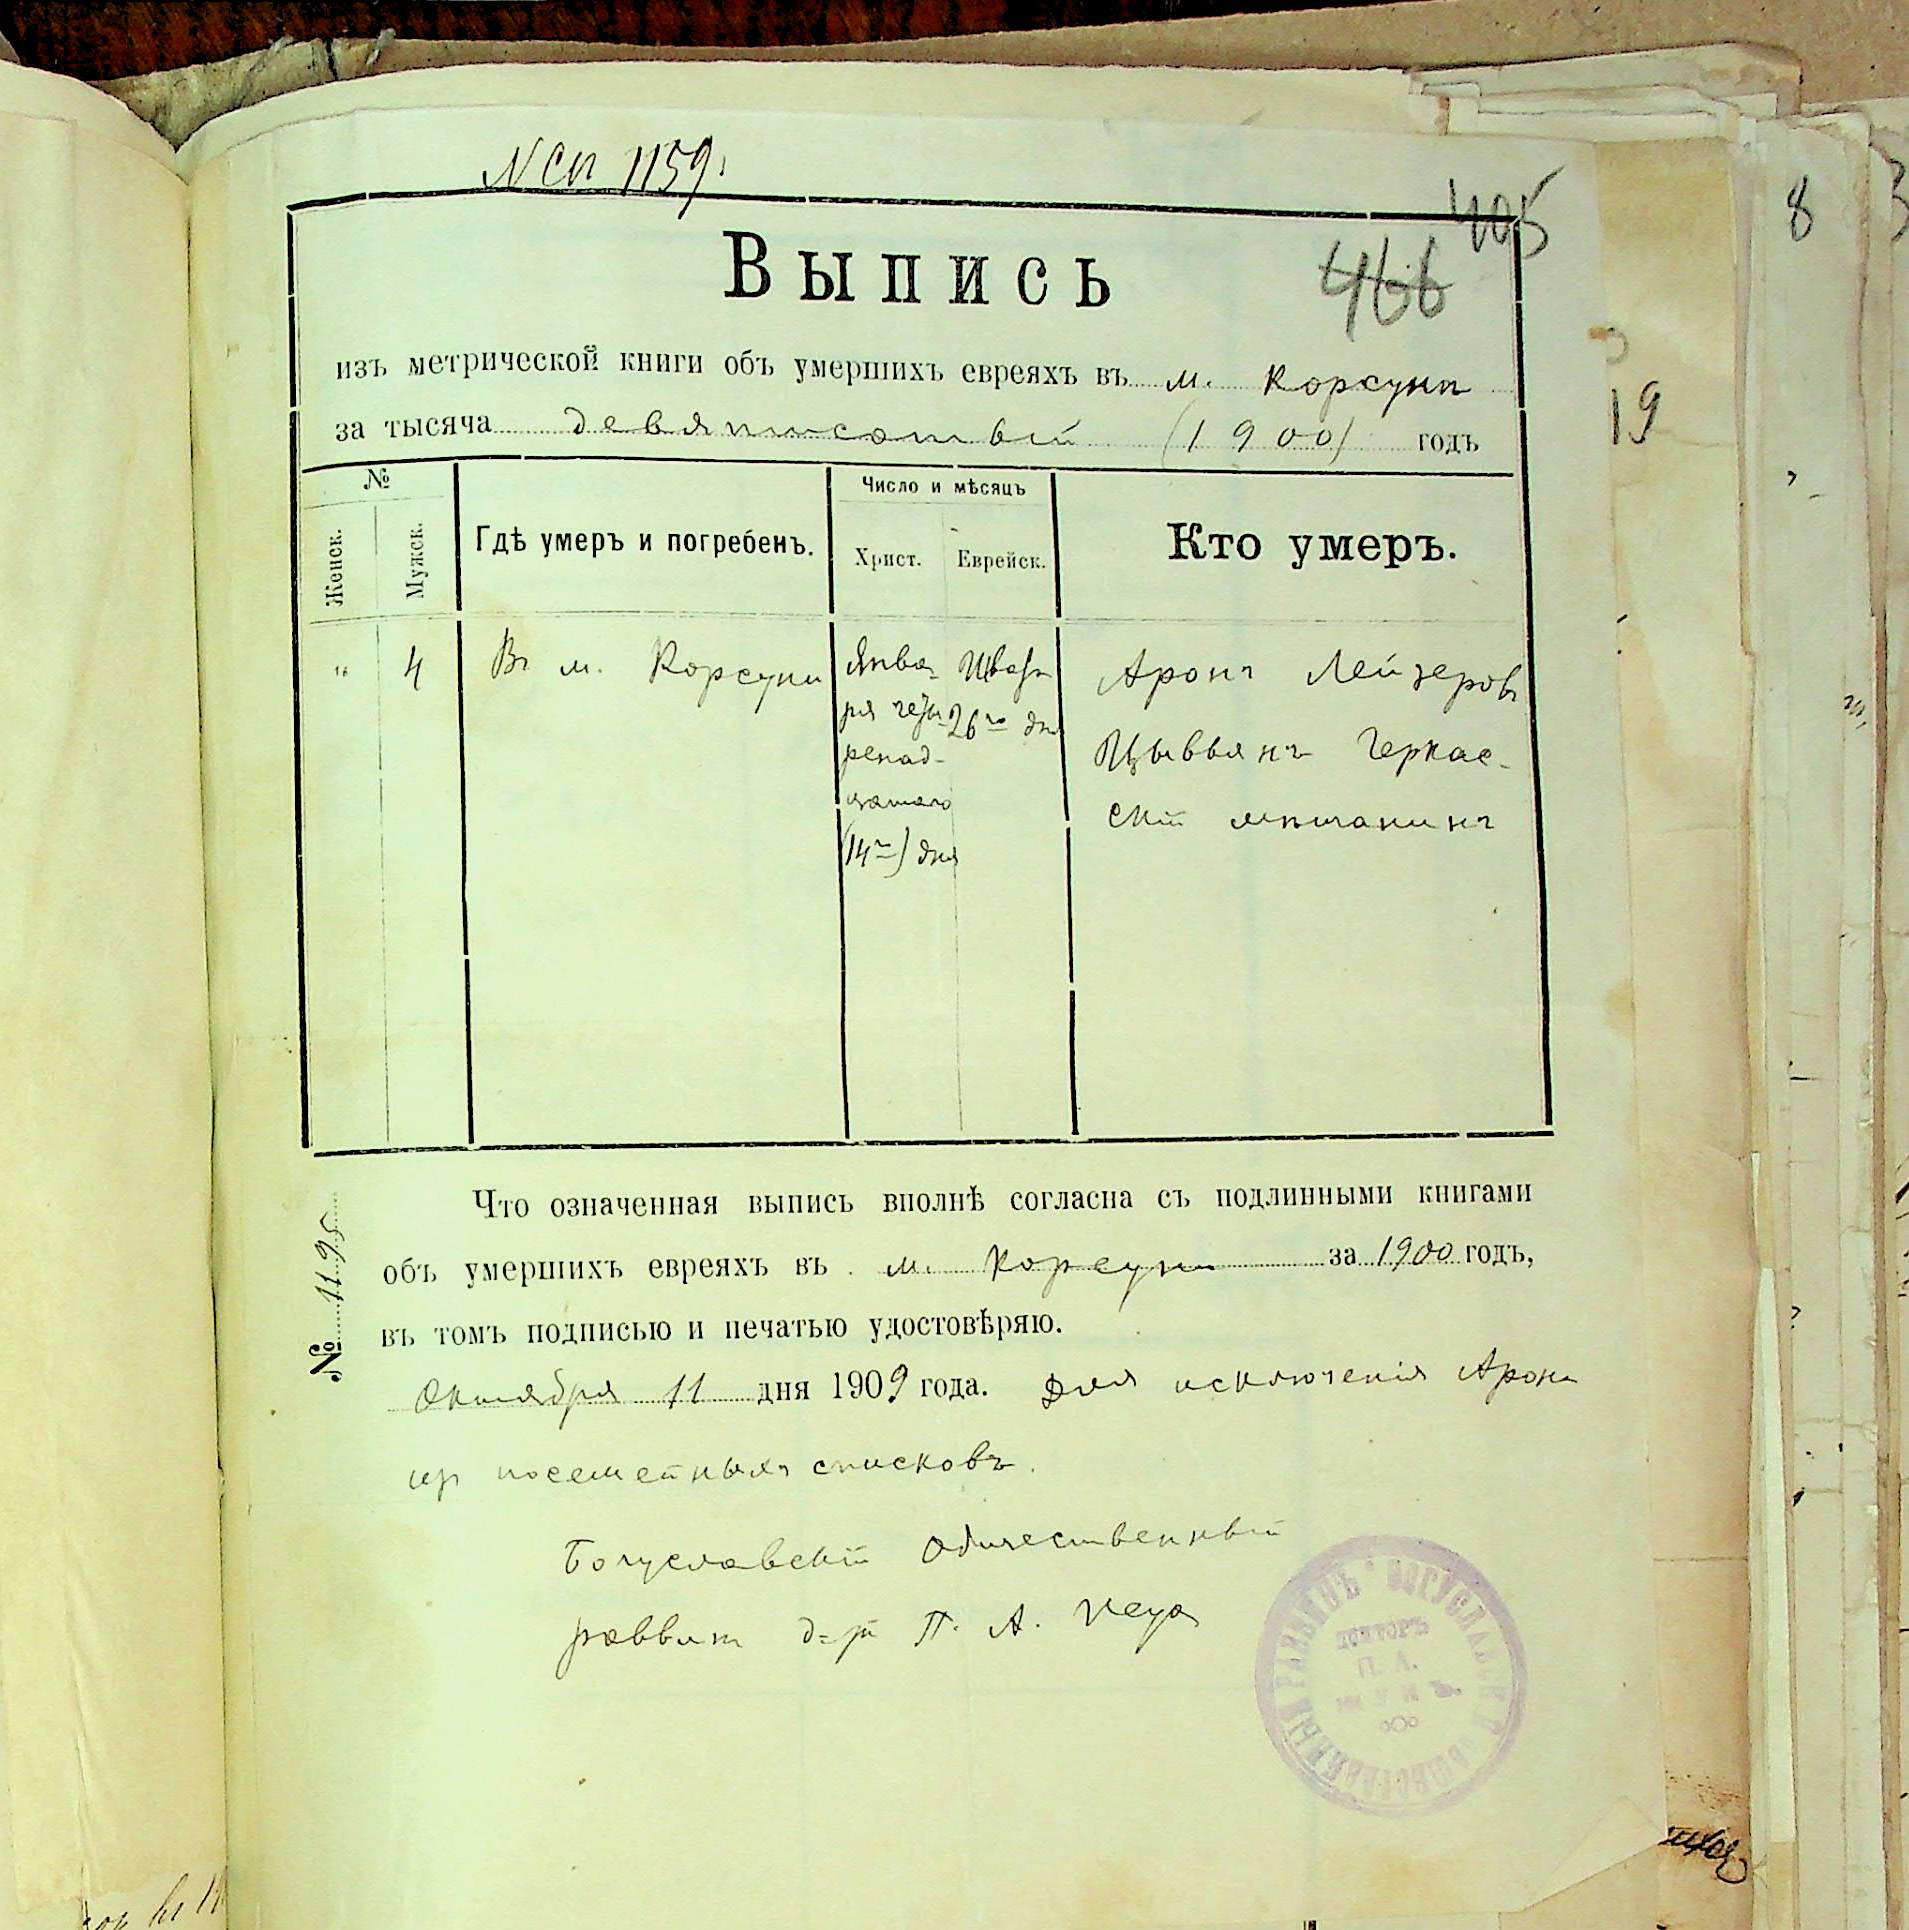 N сп 1159.
405
466
Выпись
изъ метрической книги объ умершихъ евреяхъ въ м. Корсунѣ
за тысяча девятисотый (1900) годъ
№
Женск.
Мужск.
Гдѣ умеръ и погребенъ.
Число и мѣсяцъ
Христ.
Еврейск.
Кто умеръ.
"
4
Въ м. Корсуни
Янва-
ря четы-
ренад-
цатого
(14го) дня
Шватъ
26го дня
Аронъ Лейзеровъ
Цывьянъ Черкас-
скій мѣщанинъ
№ 1195
Что означенная выпись вполнѣ согласна съ подлинными книгами
объ умершихъ евреяхъ въ м. Корсуни за 1900 годъ,
въ томъ подписью и печатью удостовѣряю.
Октября 11 дня 1909 года. Для исключенія Арона
изъ посемейныхъ списковъ.
Богуславскій Общественный
раввинъ д-ръ П. А.
БОГУСЛАВСКІЙ ОБЩЕСТВЕННЫЙ РАВВИНЪ
ДОКТОРЪ
П. А.
19
8